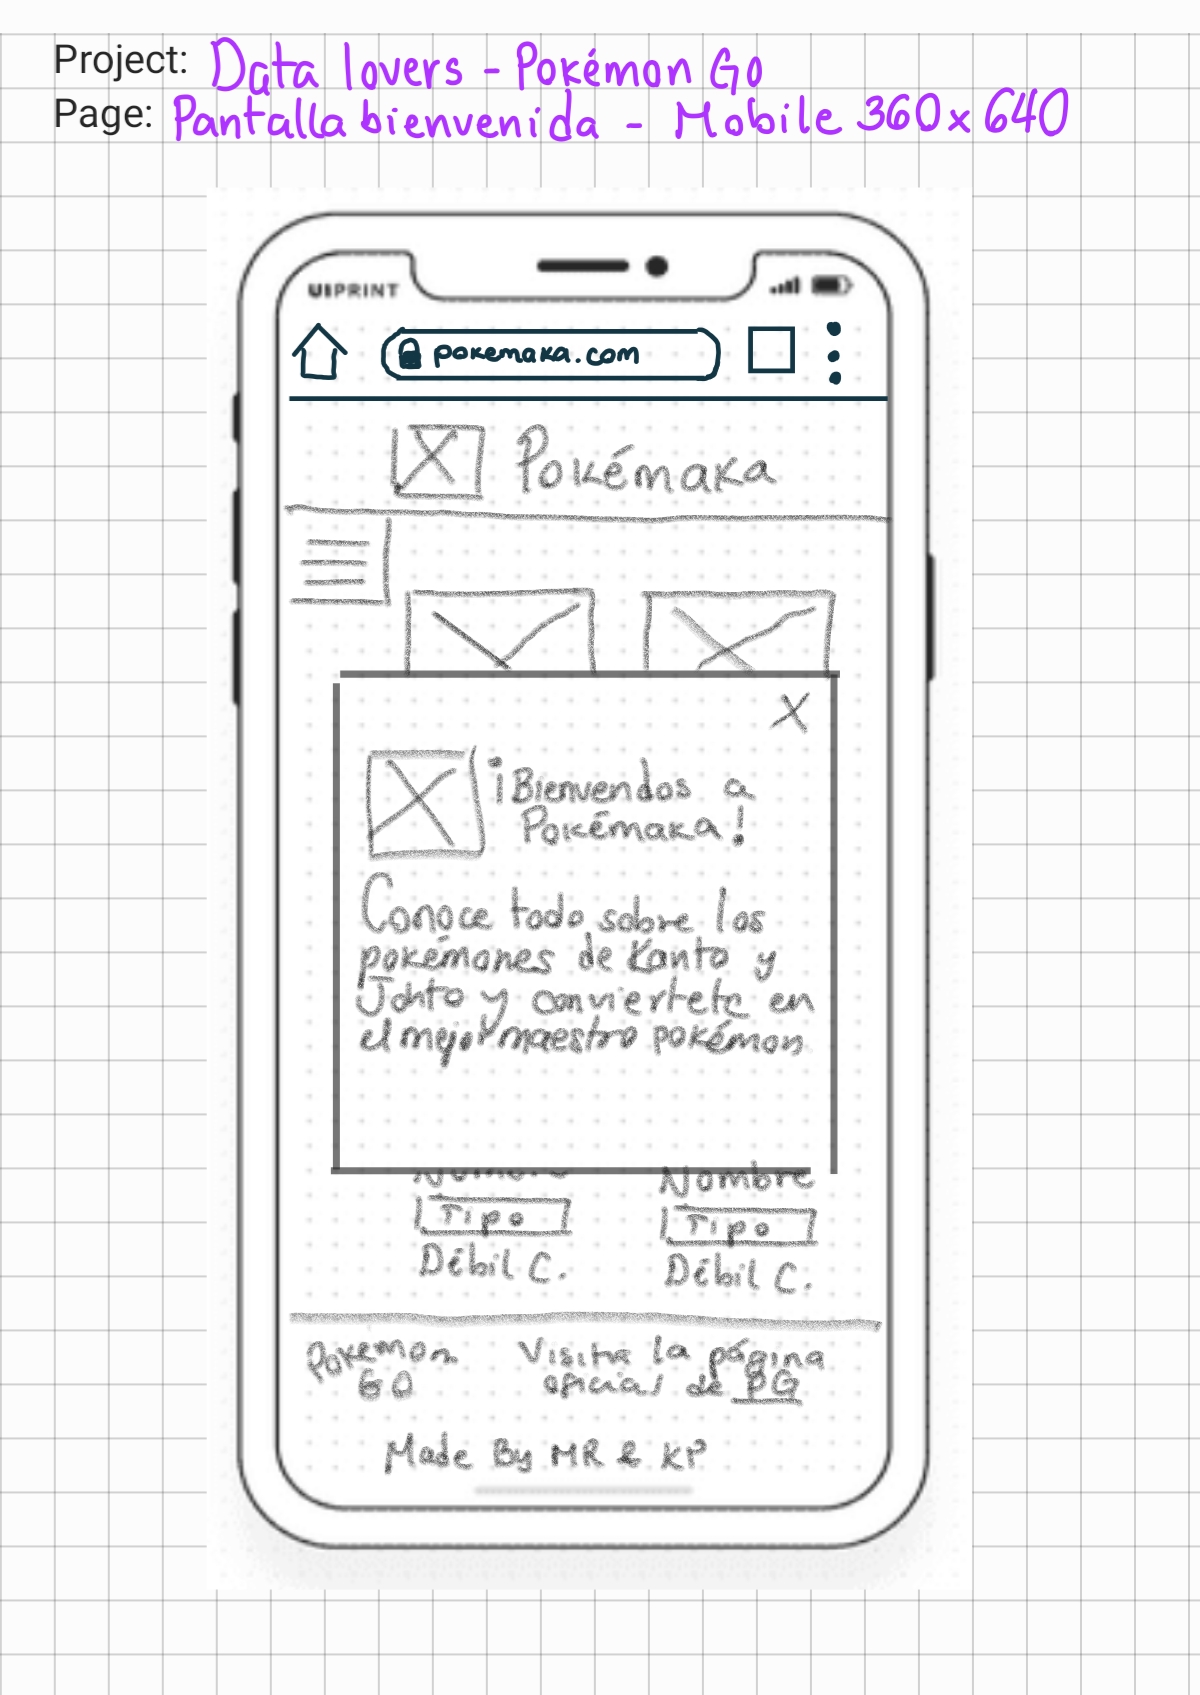 Project: Data lovers - Pokémon Go
Page: Pantalla bienvenida - Mobile 360x640
UIPRINT
pokemaka.com
Pokémaka
X
¡Bienvendos a
Pokémaka!
Conoce todo sobre los
pokémones de Kanto y
Johto y conviertete en
el mejor maestro pokémon
Nombre Nombre
Tipo Tipo
Débil C. Débil C.
Pokemon Visita la página
GO oficial de PG
Made By MR & KP